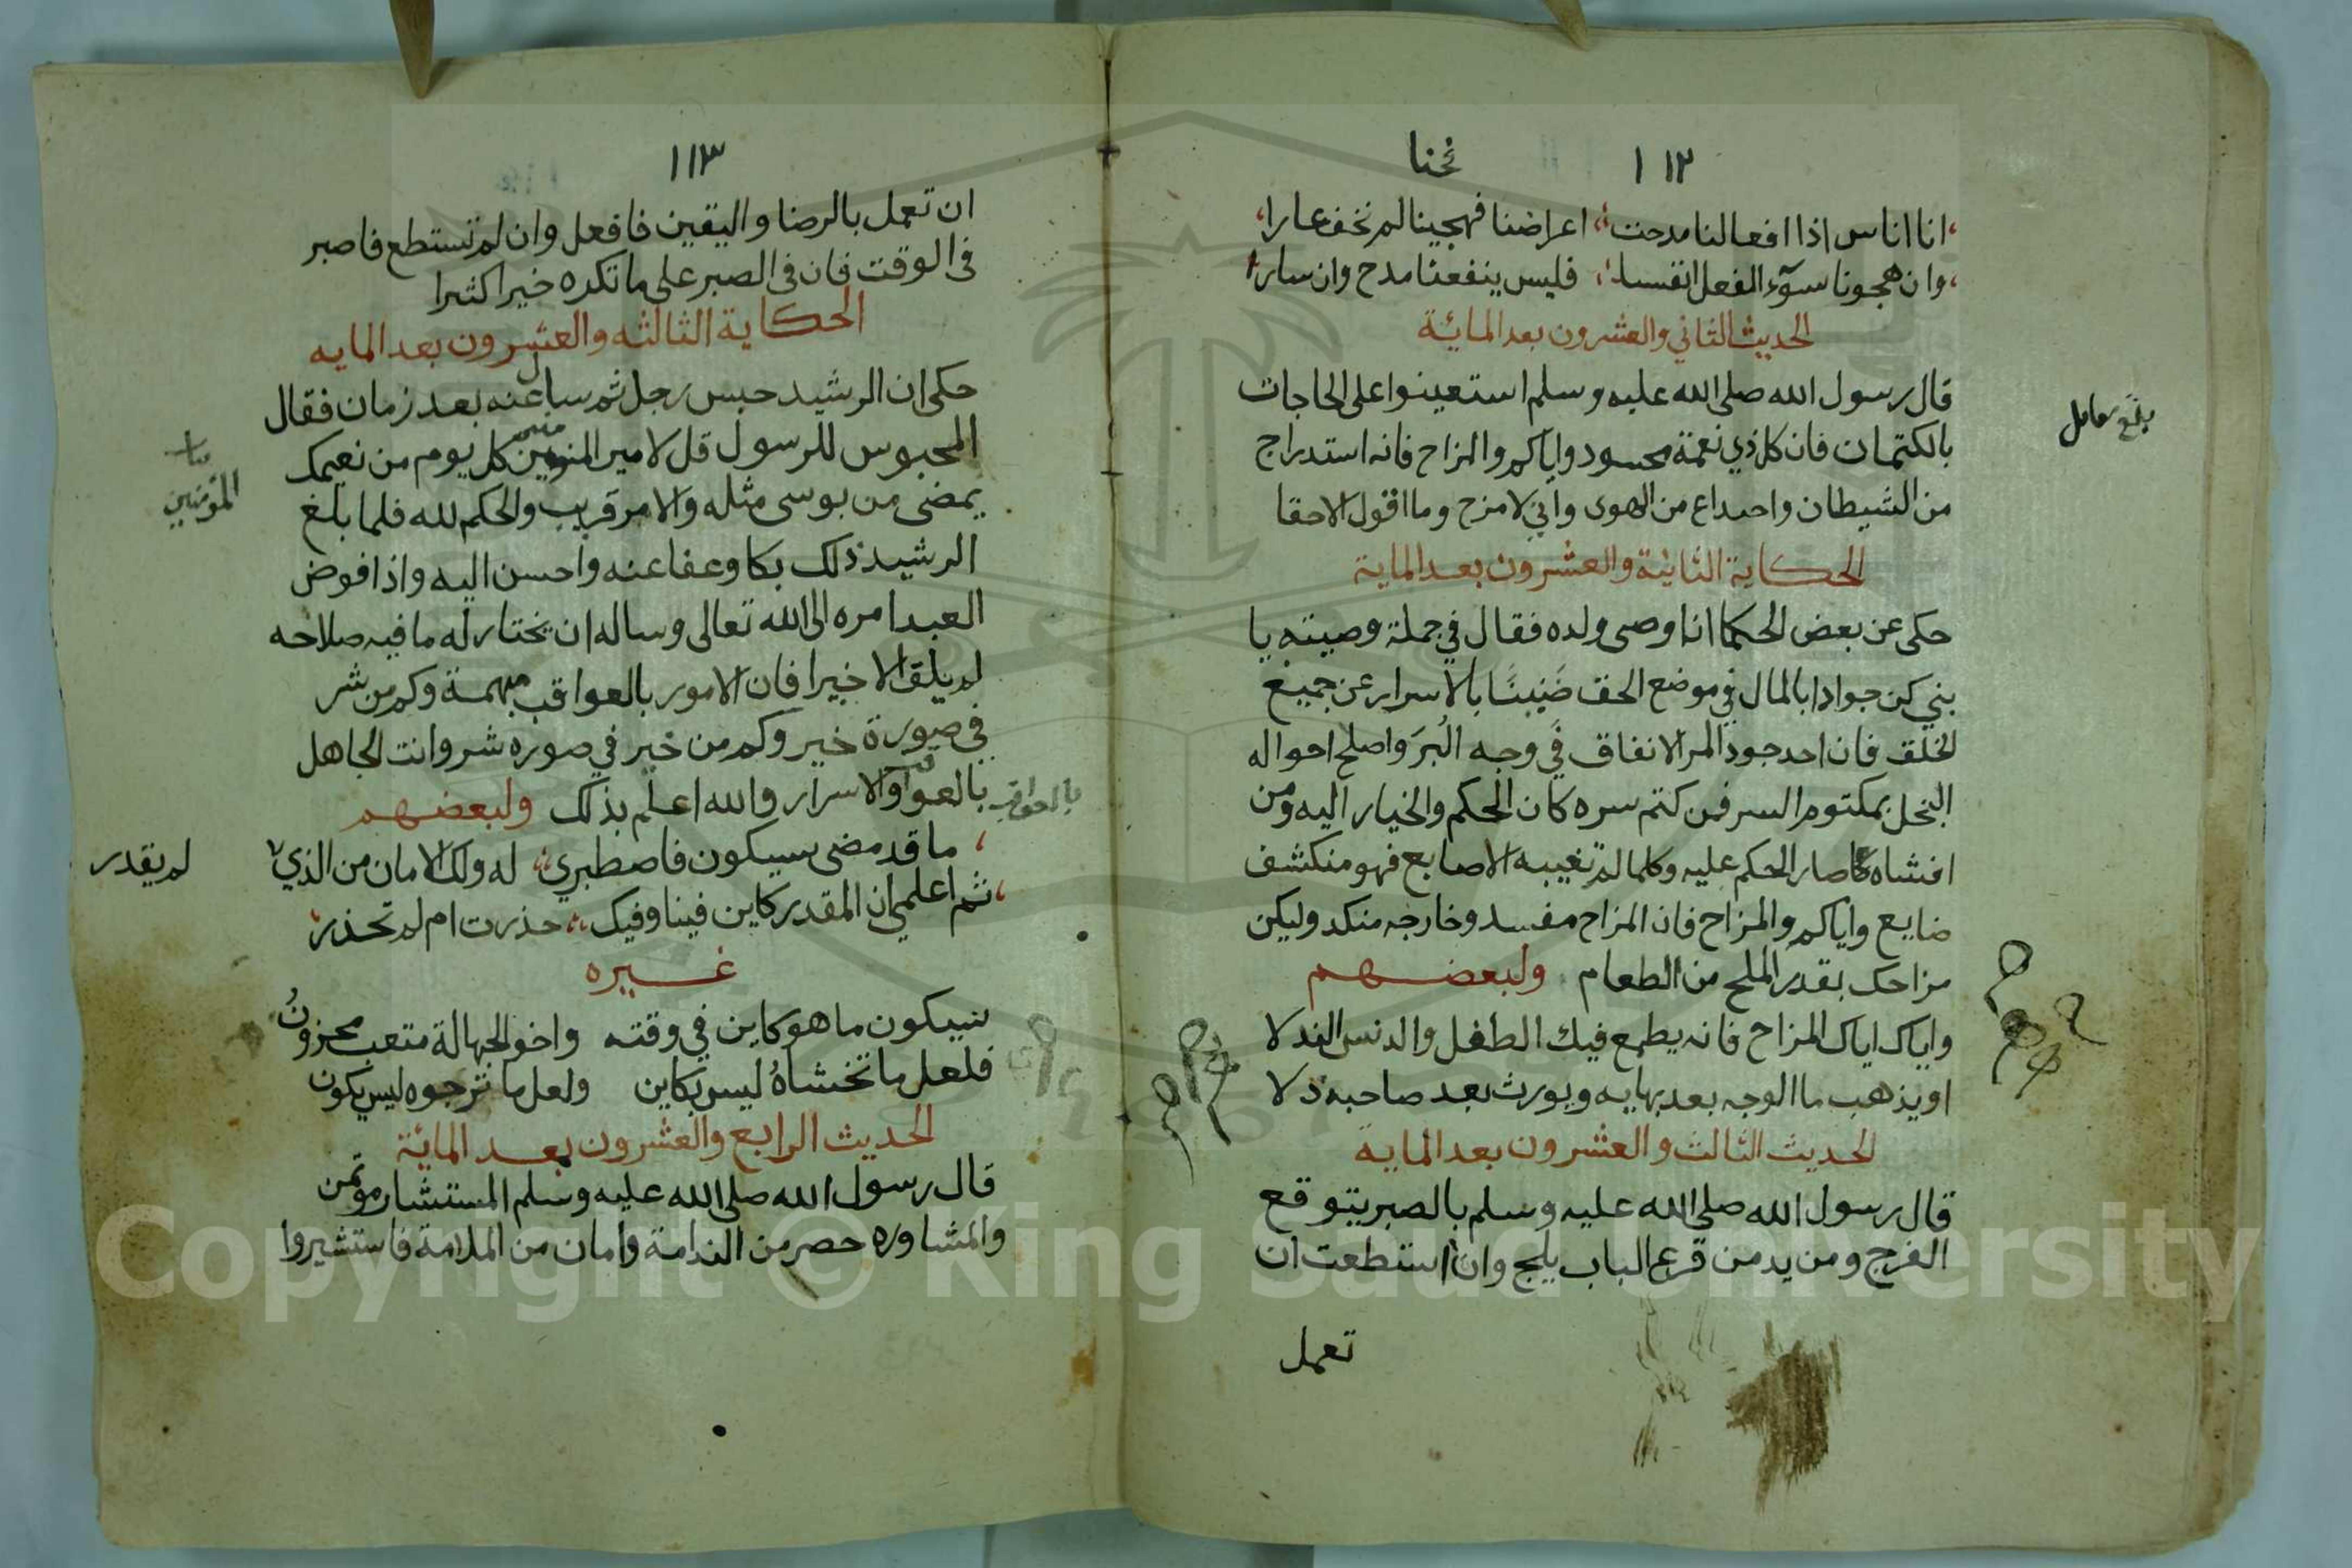 ١١٢
نحنا
انا اناس اذا افعالنا مدحت اعراضنا فهجينا لم نخف عارا
وان هجونا سوآء الفعل انفسنا فليس ينفعنا مدح وان سارا
الحديث الثاني والعشرون بعد المائة
قال رسول الله صلى الله عليه وسلم استعينوا على الحاجات
بالكتمان فان كل ذي نعمة محسود واياكم والمزاح فانه استدراج
من الشيطان واخداع من الهوى واني لامزح وما اقول الاحقا
الحكاية الثانية والعشرون بعد الماية
حكى عن بعض الحكما انه اوصى ولده فقال في جملة وصيته يا
بني كن جوادا بالمال في موضع الحق ضنينا بالاسرار عن جميع
الخلق فان احد جود المر الانفاق في وجه البر واصلح احواله
البخل بمكتوم السر فمن كتم سره كان الحكم والخيار اليه ومن
افشاه صار الحكم عليه وكلما لم تغيبه الاصابع فهو منكشف
ضايع واياكم والمزاح فان المزاح مفسد وخارجه منكد وليكن
مزاحك بقدر الملح من الطعام ولبعضهم
واياك اياك المزاح فانه يطمع فيك الطفل والدنس الندلا
او يذهب ما الوجه بعد بهايه ويورث بعد صاحبه ذلا
الحديث الثالث والعشرون بعد الماية
قال رسول الله صلى الله عليه وسلم بالصبر يتوقع
الفرج ومن يدمن قرع الباب يلج وان استطعت ان
تعمل
بلغ مقابل
١١٣
ان تعمل بالرضا واليقين فافعل وان لم تستطع فاصبر
في الوقت فان في الصبر على ما تكره خيرا كثيرا
الحكاية الثالثه والعشرون بعد المايه
حكى ان الرشيد حبس رجل ثم سال عنه بعد زمان فقال
المحبوس للرسول قل لامير المومنين كل يوم من نعيمك
يمضى من بوسى مثله والامر قريب والحكم لله فلما بلغ
الرشيد ذلك بكا وعفا عنه واحسن اليه واذا فوض
العبد امره الى الله تعالى وساله ان يختار له ما فيه صلاحه
لم يلق الا خيرا فان الامور بالعواقب مبهمة وكم من شر
في صورة خير وكم من خير في صوره شر وانت الجاهل
بالعواقب والاسرار والله اعلم بذلك ولبعضهم
ما قد مضى سيكون فاصطبري له ولك الامان من الذي لا
ثم اعلمي ان المقدر كاين فينا وفيك حذرت ام لم تحذر
غيره
سيكون ما هو كاين في وقته واخو الجهالة متعب محزون
فلعل ما تخشاه ليس بكاين ولعل ما ترجوه ليس يكون
الحديث الرابع والعشرون بعد المائة
قال رسول الله صلى الله عليه وسلم المستشار موتمن
والمشاوره حصر من الندامة وامان من الملامة فاستشيروا
المؤمنين
بالعواقب
لم يقدر
Copyright © King Saud University
1957